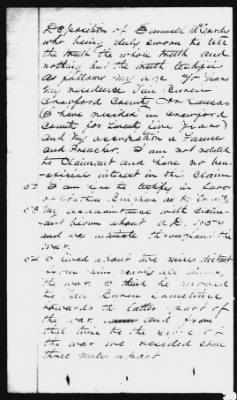 Deposition of Samuel
who being duly sworn to tell
the truth the whole truth and
nothing but the truth testifies
as follows my age 40 years
my residence Van Buren
Crawford County Arkansas
(I have resided in Crawford
county for Twelve live years)
and my occupation a Farmer
and Preacher. I am not related
to Claimant and have no ben-
eficial interest in this claim
I am here to testify in favor
of
My acquaintance with claim-
ant began about A.D. 1854
and was intimate throughout the
war.
I lived about two miles distant
from him nearly all during
the war. I think he moved
to Van Buren sometime
towards the latter part of
the war and from
that time to the close of
the war we resided some
three miles apart